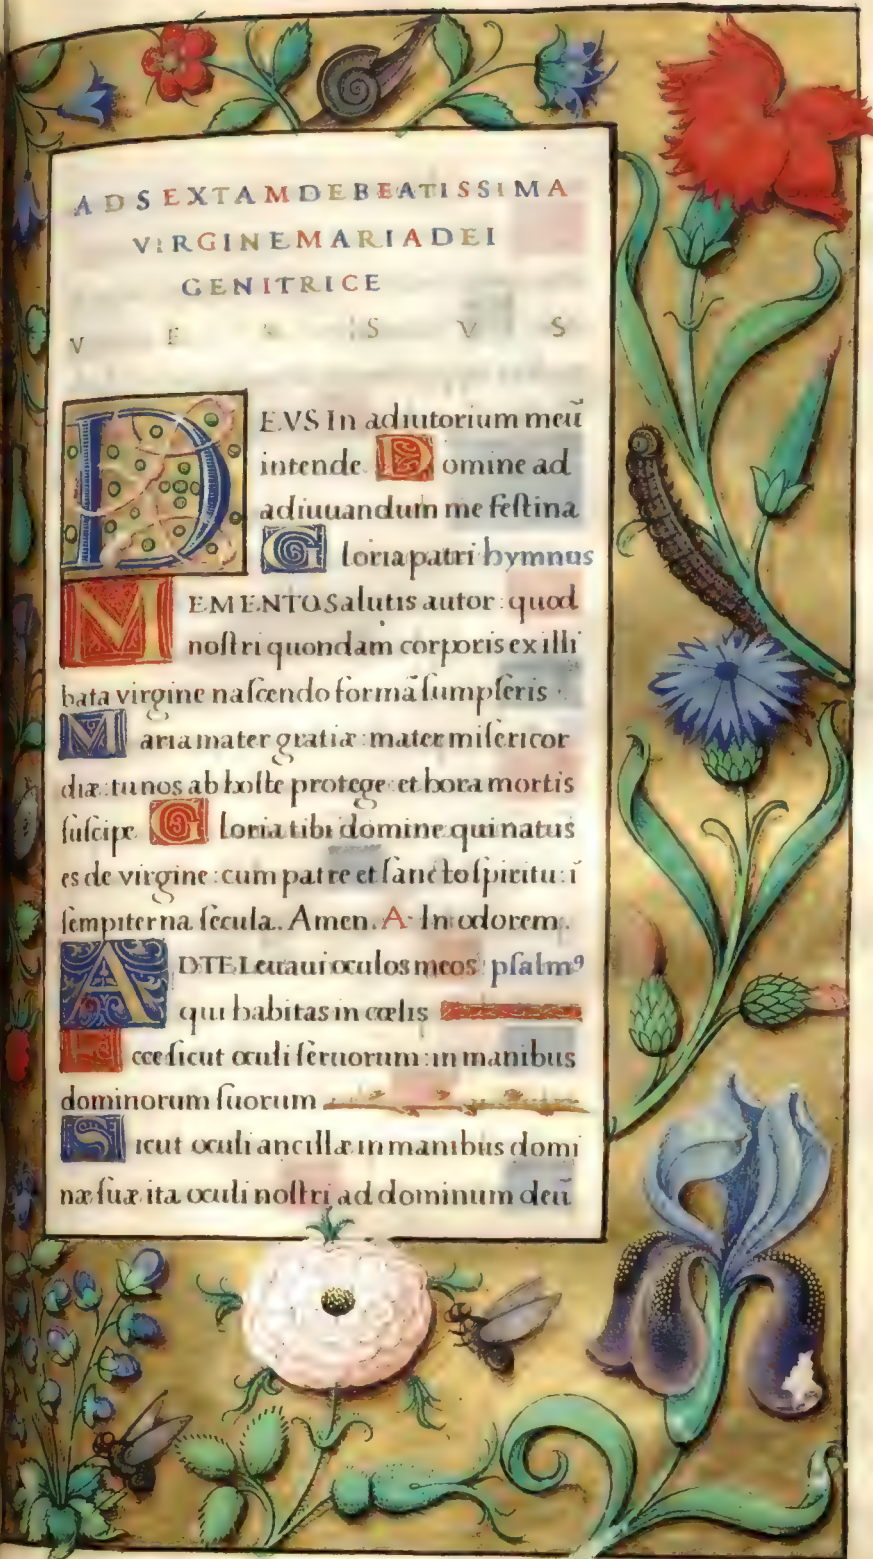 AD SEXTAM DE BEATISSIMA
VIRGINE MARIA DEI
GENITRICE
V E S V S
DEVS In adiutorium meū
intende Domine ad
adiuuandum me festina
Gloria patri hymnus
MEMENTO Salutis autor : quod
nostri quondam corporis ex illi
bata virgine nascendo formā sumpseris ·
Maria mater gratiæ : mater misericor
diæ : tu nos ab hoste protege : et hora mortis
suscipe Gloria tibi domine qui natus
es de virgine : cum patre et sancto spiritu : ī
sempiterna secula. Amen. A· In odorem.
AD TE Leuaui oculos meos : psalmꝰ
qui habitas in cœlis
Ecce sicut oculi seruorum : in manibus
dominorum suorum
Sicut oculi ancillæ in manibus domi
næ suæ ita oculi nostri ad dominum deū